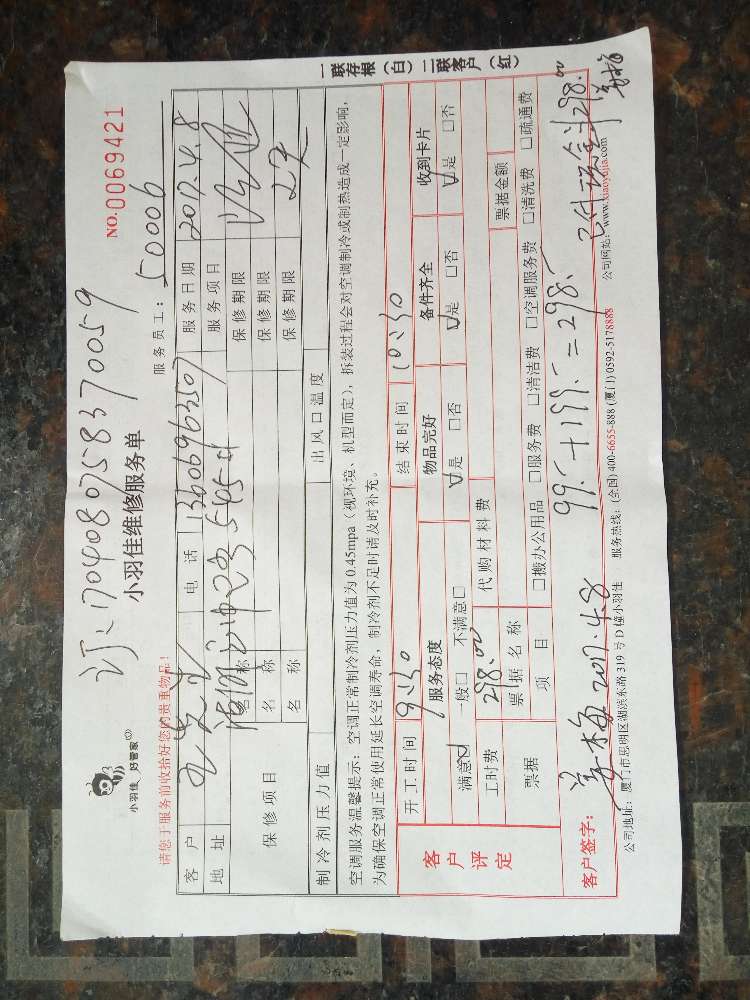 订:17040807583700059
NO.0069421
小羽佳 好管家
小羽佳维修服务单
服务员工:50006
请您于服务前收拾好您的贵重物品!
客户 电话 13606963507 服务日期 2017.4.8
地址 545 服务项目
保修项目 名称 保修期限
名称 保修期限
名称 保修期限
制冷剂压力值 出风口温度
空调服务温馨提示:空调正常制冷剂压力值为0.45mpa(视环境、机型而定),拆装过程会对空调制冷或制热造成一定影响,
为确保空调正常使用延长空调寿命,制冷剂不足时请及时补充。
客户评定
开工时间 9:30 结束时间 10:30
服务态度 物品完好 备件齐全 收到卡片
满意☑ 一般□ 不满意□ ☑是 □否 ☑是 □否 ☑是 □否
工时费 298.00 代购材料费
票据 票据名称 票据金额
项目 □搬办公用品 □服务费 □清洁费 □空调服务费 □清洗费 □疏通费
99.- + 199.- = 298.-
客户签字: 姜梅 2017.4.8
已付现金298.00
姜梅
公司地址:厦门市思明区湖滨东路319号D幢小羽佳 服务热线:(全国)400-6655-888 (厦门)0592-5178888 公司网站:www.xiaoyujia.com
一联存根(白)二联客户(红)